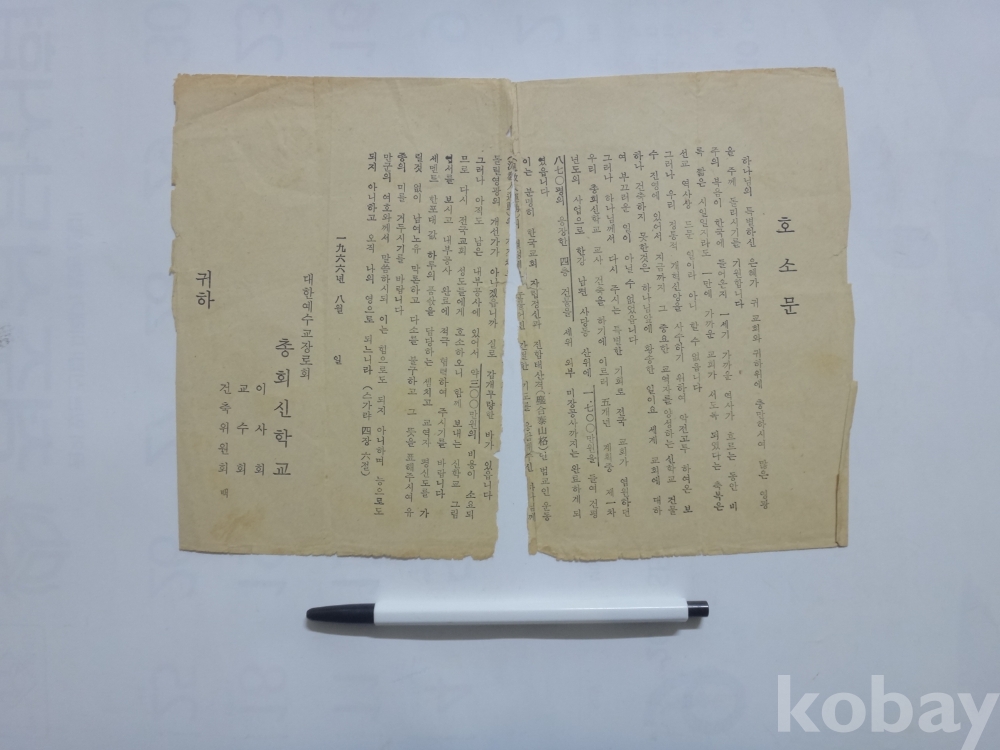 호소문
하나님의 특별하신 은혜가 귀 교회와 위하위에 충만하시며 많은 일꾼
을 주께 돌리시기를 기원합니다
주의 복음이 한국에 들어온지 一세기 가까운 역사가 흐르는 동안 비
록 짧은 시일일지라도 一만에 가까운 교회가 서도록 되었다는 축복은
선교 역사상 드문 일이라 아니 할 수 없습니다
그러나 우리 정통적 개혁신앙을 사수하기 위하여 악전고투 하여온 보
수 진영에 있어서 지금까지 그 중요한 교역자를 양성하는 신학교 건물
하나 건축하지 못한것은 하나님앞에 황송한 일이요 세계 교회에 대하
여 부끄러운 일이 아닐 수 없었읍니다
그러나 하나님께서 다시 주시는 특별한 기회로 전국 교회가 일원하던
우리 총회신학교 교사 건축을 하기에 이르러 五개년 계획중 제一차
년도의 사업으로 한강 남편 사당동 산위에 一、七〇〇만원을 들여 건평
八七〇평의 웅장한 四층 건물을 세워 외부 미장공사까지는 완료하게 되
었읍니다
이는 분명히 한국교회 자립정신과 진합태산격(塵合泰山格)인 범교인 운동
들 헌영광의 개선가가 아니겠읍니까 실로 감개무량한 바가 있읍니다
그러나 아직도 남은 내부공사에 있어서 약 三〇〇만원의 비용이 소요되
므로 다시 전국교회 성도들에게 호소하오니 함께 보내는 신학교 그림
엽서를 보시고 내부공사 완료에 적극 협력하여 주시기를 바랍니다
세멘트 한포대 값 하루의 품삯을 담당하는 셈치고 교역자 평신도를 가
릴것 없이 남여노유 막론하고 다소를 불구하고 그 뜻을 표해주시여 유
종의 미를 거두시기를 바랍니다
만군의 여호와께서 말씀하시되 이는 힘으로도 되지 아니하며 능으로도
되지 아니하고 오직 나의 영으로 되느니라 (스가랴 四장 六절)
一九六六년 八월 일
대한예수교장로회
총회신학교
이사회
교수회
건축위원회 백
귀하
kobay